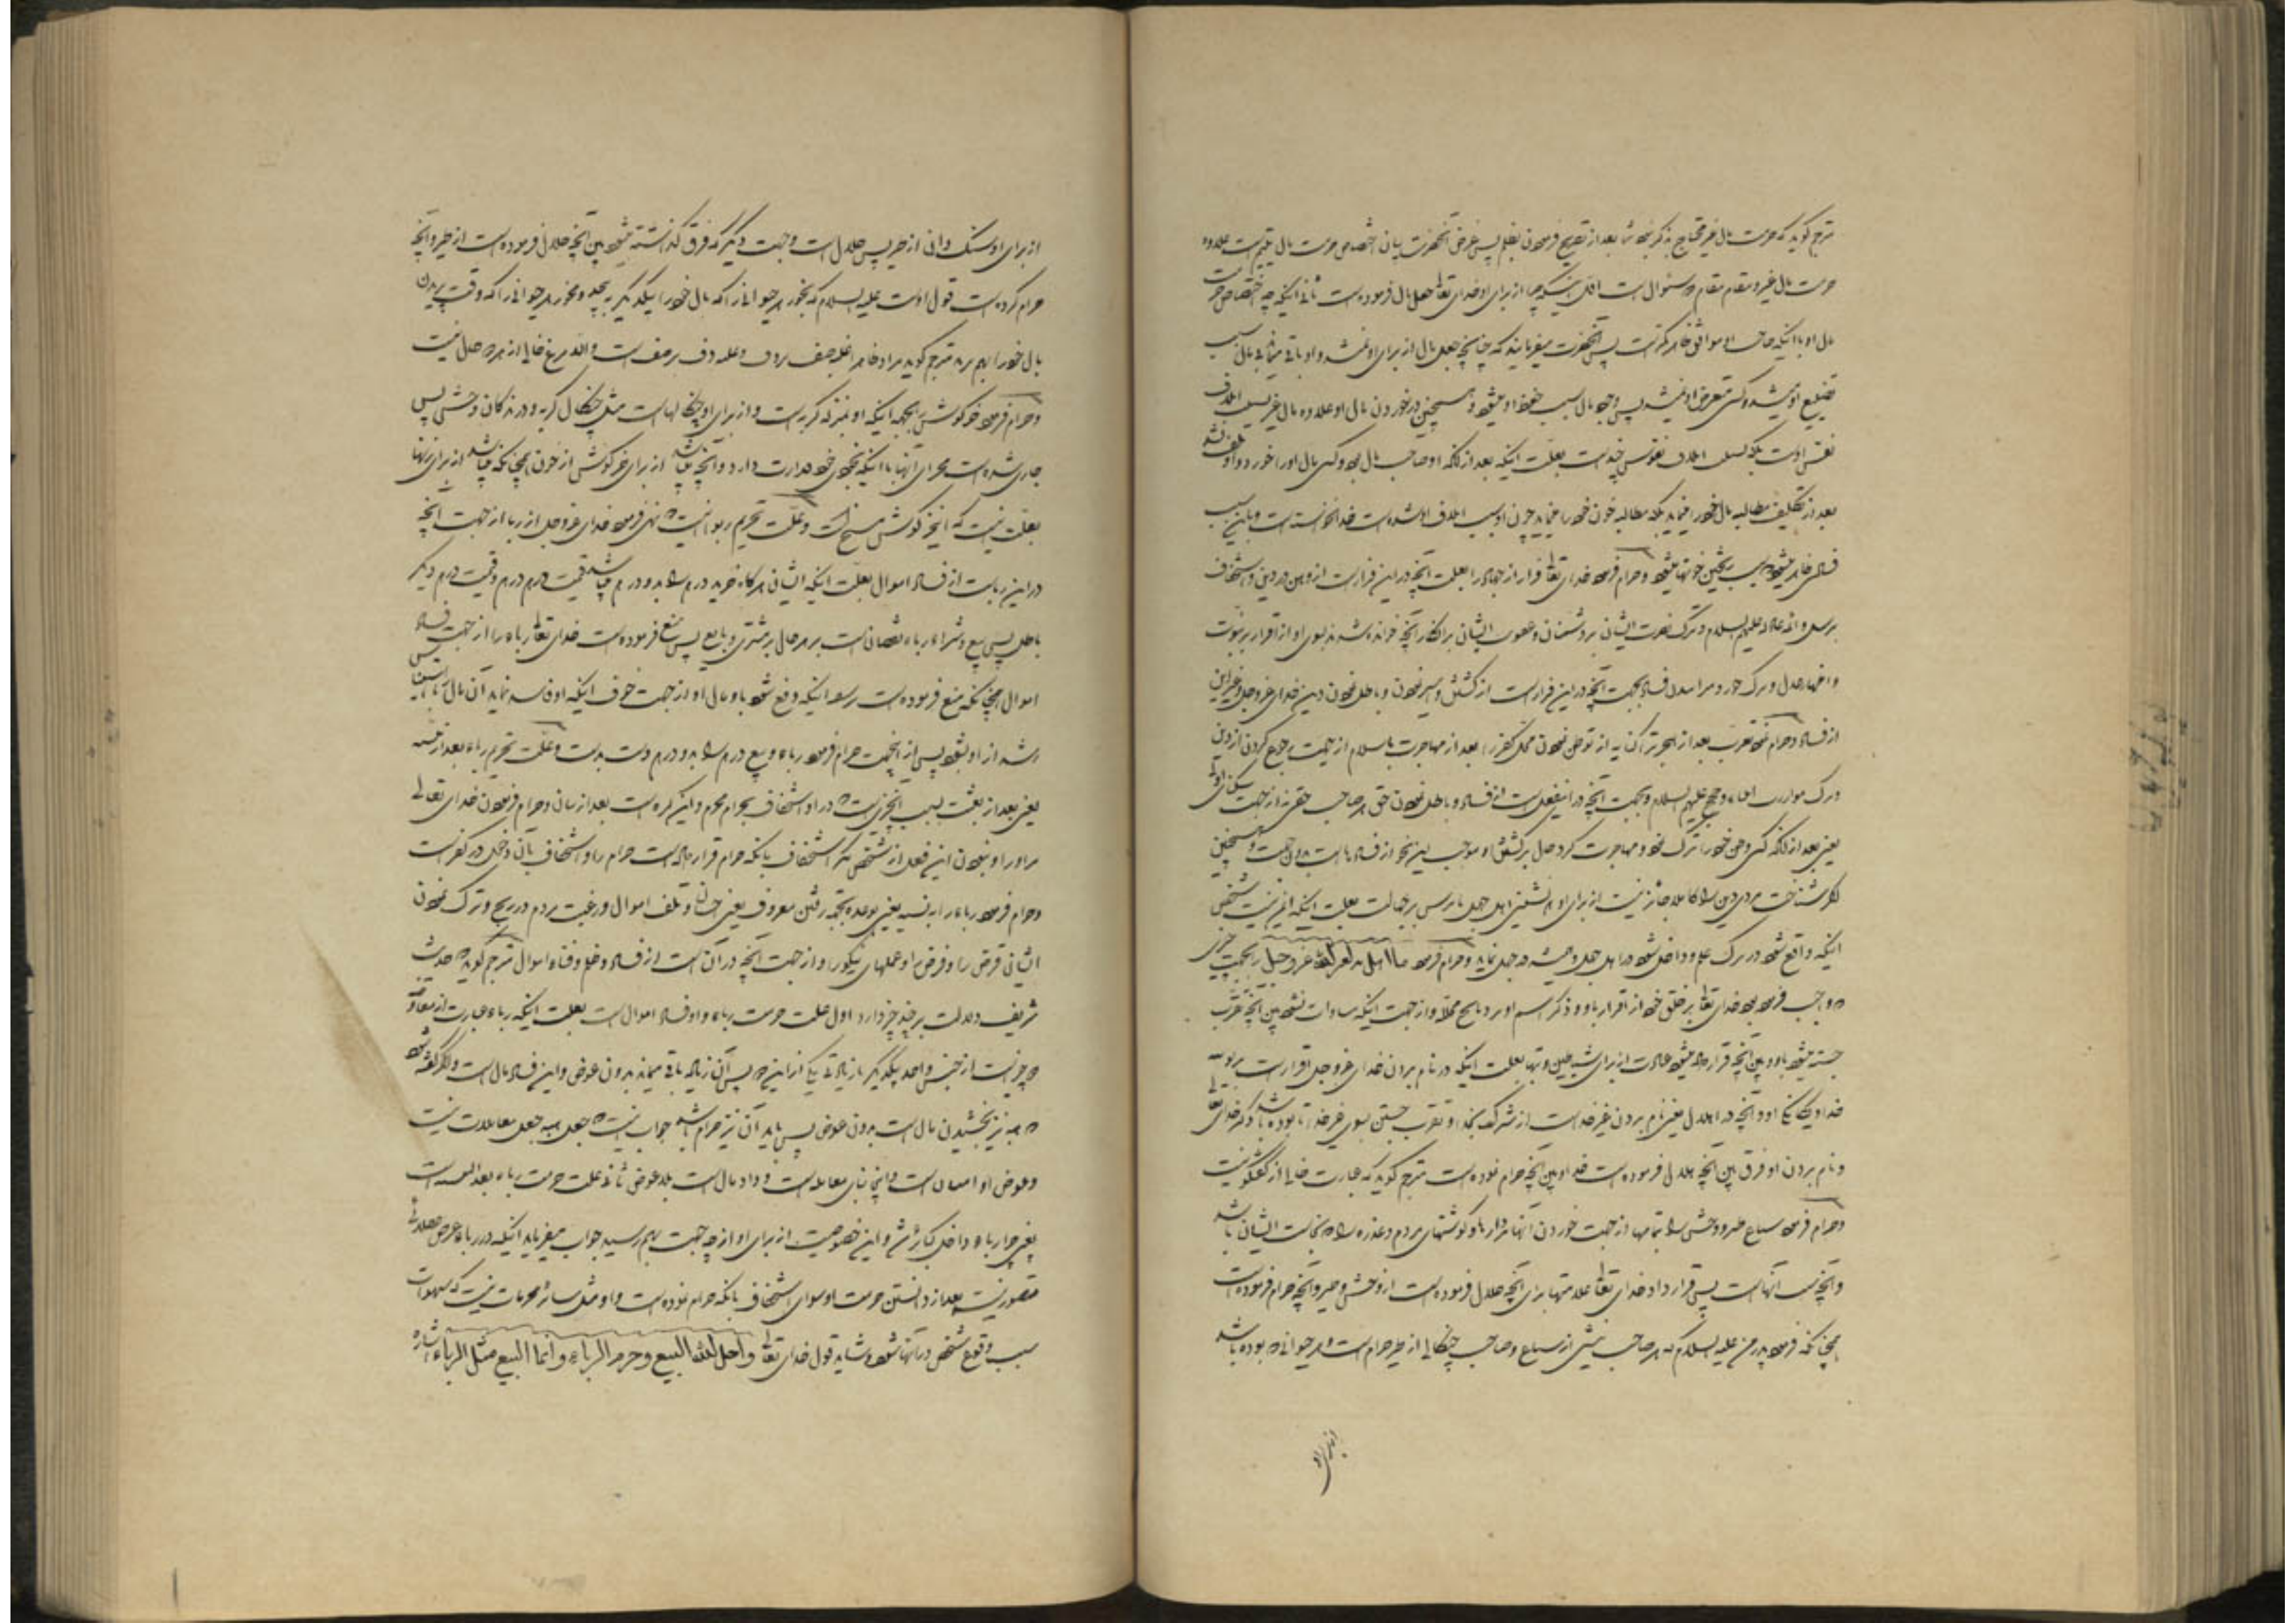 مترجم گوید که حرمت مال غیر محتاج بذکر نبود بعد از تصریح فرمودن بظلم پس غرض آنحضرت بیان اختصاص حرمت مال یتیم است علاوه
حرمت مال غیر و مقام مقام دو سئوال است اول اینکه چرا از برای او خدای تعالی جعل مال فرموده است ثانی اینکه چه اختصاص حرمت
مال او با اینکه صاحب او موافق ظاهر کم است پس آنحضرت میفرمایند که چنانچه جعل مال از برای او نمیشد و او باقی میماند بی مال سبب
تضییع او میشد و کسی متعرض او نمیشد پس وجود مال سبب حفظ او میشود و همچنین در خوردن مال او علاوه مال غیر سبب اتلاف
نفس اوست بلکه سبب اتلاف نفوس چند است بعلت اینکه بعد از آنکه او صاحب مال بود و کسی مال او را خورد و او تلف نشد
بعد از تکلیف مطالبه مال خود را مینماید بلکه مطالبه خون خود را مینماید چون او سبب اتلاف او شده است خدا نخواسته است و باین سبب
فساد ظاهر میشود و سبب ریختن خونها میشود و حرام فرمود خدای تعالی فرار از جهاد را بعلت آنچه در این فرار است از وهن در دین و استخفاف
برسل و ائمه عادله علیهم السلام و ترک نصرت ایشان بر دشمنان و عقوبت ایشان بر انکار آنچه خوانده شدند بسوی او از اقرار بربوبیت
و اظهار عدل و ترک جور و میراندن فساد بجهت آنچه در این فرار است از کشتن و اسیر نمودن و باطل نمودن دین خدای عزوجل و غیر این
از فساد و حرام نمود تعرب بعد از هجرت را کنایه از توطن نمودن محل کفر را بعد از مهاجرت باسلام از جهت رجوع کردن از دین
و ترک موازرت انبیاء و حجج علیهم السلام و بجهت آنچه در اینفعل است از فساد و باطل نمودن حق هر صاحب حقی نه از جهت سکنای او
یعنی بعد از آنکه کسی وطن خود را ترک نمود و مهاجرت کرد حال برگشتن او موجب این نحو از فساد است بدون جهت و همچنین
اگر شناخت مردی دین را کاملا جائز نیست از برای او همنشینی اهل جهل با ترس بر جهالت بعلت اینکه ایمن نیست شخص
اینکه واقع شود در ترک علم و داخل شود در اهل جهل و همیشه در جهل نماید و حرام فرمود ما اهل به لغیر الله عزوجل را بجهت چیزی
که واجب فرموده خدای تعالی بر خلق خود از اقرار باو و ذکر اسم او بر ذبایح محلله و از جهت اینکه مساوات نشود بین آنچه تقرب
جسته میشود باو و بین آنچه قرار داده میشود عبادت از برای شیاطین و بتها بعلت اینکه در نام بردن خدای عزوجل اقرار است بربوبیت
خدا و یگانگی او و آنچه در اهلال یعنی نام بردن غیر خداست از شرک بخدا و تقرب جستن بسوی غیر خدا تا بوده باشد ذکر خدای تعالی
و نام بردن او فرق بین آنچه حلال فرموده است خدا و بین آنچه حرام نموده است مترجم گوید که عبارت خالی از گفتگو نیست
و حرام فرمود سباع طیر و وحشی را تمامها از جهت خوردن آنها مردارها و گوشتهای مردم و عذره را و نجاست ایشان باشد
و آنچه شبیه آنهاست پس قرار داد خدای تعالی علامتها برای آنچه حلال فرموده است از وحشی و طیر و آنچه حرام فرموده است
همچنانکه فرمود پدر من علیه السلام که هر صاحب نیشی از سباع و صاحب چنگالی از طیر حرام است و هر حیوانی که بوده باشد
از برای او سنگ دانی از طیر پس حلال است و جهت دیگر که فرق گذاشته میشود بین آنچه حلال فرموده است از طیر و آنچه
حرام کرده است قول اوست علیه السلام که بخور هر حیوانی را که بال خود را بیکدیگر بپیچد و مخور هر حیوانی را که وقت پریدن
بال خود را بهم برد مترجم گوید مراد ظاهر اغلب صف و دف و علامه دف بر صف است والا مرغ خالی از هر دو حال نیست
و حرام فرمود خرگوش را بجهة اینکه او بمنزله گربه است و از برای او چنگالهاست مثل چنگال گربه و درندگان وحشی پس
جاری شده است مجرای آنها با اینکه بخودی خود قذارت دارد و آنچه میباشد از برای خرگوش از خون همچنانکه میباشد از برای زنها
بعلت اینست که اینخرگوش مسخ است و علت تحریم ربوا اینست که نهی فرمود خدای عزوجل از ربا از جهت آنچه
در این ربا است از فساد اموال بعلت اینکه انسان هر گاه خرید درم را بدو درم میباشد قیمت درم درم و قیمت درم دیگر
باطل پس بیع و شراء رباء نقصان است بر هر حال بر مشتری و بایع پس منع فرموده است خدای تعالی رباء را از جهت فساد
اموال همچنانکه منع فرموده است بر سفیه اینکه دفع شود باو مال او از جهت خوف اینکه او فاسد نماید آن مال را تا اینکه استیناس
رشد از او بشود پس از اینجهت حرام فرمود رباء و بیع درم را بدو درم دست بدست و علت تحریم رباء بعد از بینه
یعنی بعد از بعثت بسبب آنچیزیست که در او استخفاف بحرام محرم و این کبیره است بعد از بیان و حرام فرمودن خدای تعالی
مر او را و نبودن این فعل از شخص مگر استخفاف بآنکه حرام قرار داده است حرام را و استخفاف بآن دخول در کفر است
و حرام فرمود رباء را بنسیه یعنی بوعده بجهة رفتن معروف یعنی احسان و تلف اموال و رغبت مردم در ربح و ترک نمودن
ایشان قرض را و قرض او عملهای نیکو را و از جهت آنچه در آن است از فساد و ظلم و فناء اموال مترجم گوید که حدیث
شریف دلالت بر چند چیز دارد اول علت حرمت رباء و او فساد اموال است بعلت اینکه رباء عبارت از معاوضه
دو چیز است از جنس واحد بیکدیگر با زیادتی یکی از این دو پس آن زیاده باقی میماند بدون عوض و این فساد مال است و اگر گفته شود
که هبه نیز بخشیدن مال است بدون عوض پس باید آن نیز حرام باشد جواب اینست که جعل هبه جعل معاملات نیست
و عوض او احسان است و اینجا بنای معامله است و داد مال است بلاعوض ثانی علت حرمت رباء بعد البینه است
یعنی چرا رباء داخل کبائر شد و این خصوصیت از برای او از چه جهت بهم رسید جواب میفرماید اینکه در رباء غرض عقلائی
متصور نیست بعد از دانستن حرمت او سوای استخفاف بآنکه حرام نموده است و او مثل سائر محرمات نیست که شهوات
سبب وقوع شخص در آنها شود و شاید قول خدای تعالی و احل الله البیع و حرم الرباء و انما البیع مثل الرباء اشاره